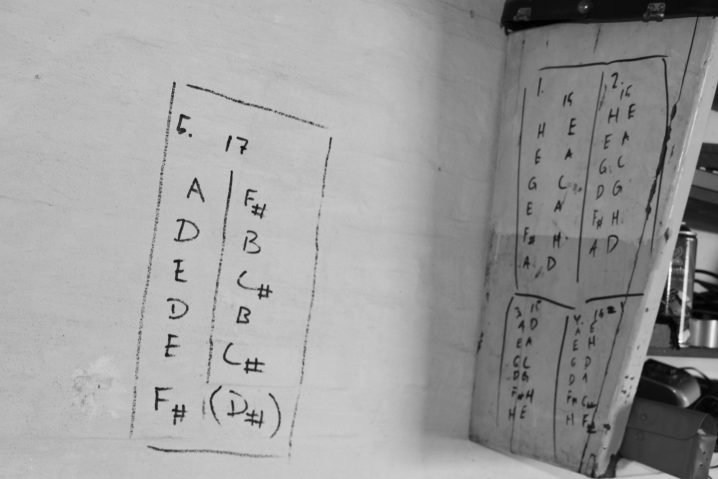 5.
17
A F#
D B
E C#
D B
E C#
F# (D#)
1.
15
H E
E A
G C
E A
F# H
A D
2.
15
H E
E A
G C
D G
F# H
A D
3. 15
A D
E A
G C
D
F# H
H E
4.
E
E H
G D
D A
F#
H F#